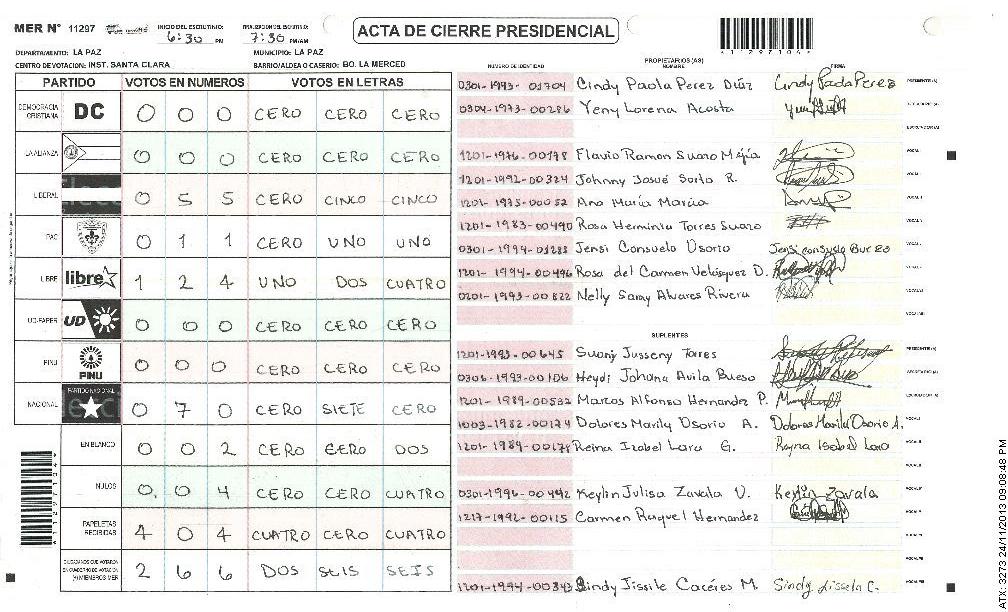 MER Nº 11297 INICIO DEL ESCRUTINIO: 6:30 PM FINALIZACION DEL ESCRUTINIO: 7:30 PM/AM
ACTA DE CIERRE PRESIDENCIAL
*11297104*
DEPARTAMENTO: LA PAZ MUNICIPIO: LA PAZ
CENTRO DE VOTACION: INST. SANTA CLARA BARRIO/ALDEA O CASERIO: BO. LA MERCED
PARTIDO VOTOS EN NUMEROS VOTOS EN LETRAS
DEMOCRACIA CRISTIANA DC 0 0 0 CERO CERO CERO
LA ALIANZA 0 0 0 CERO CERO CERO
LIBERAL 0 5 5 CERO CINCO CINCO
PAC 0 1 1 CERO UNO UNO
LIBRE libre 1 2 4 UNO DOS CUATRO
UD-FAPER UD 0 0 0 CERO CERO CERO
PINU PINU 0 0 0 CERO CERO CERO
NACIONAL PARTIDO NACIONAL 0 7 0 CERO SIETE CERO
EN BLANCO 0 0 2 CERO CERO DOS
NULOS 0 0 4 CERO CERO CUATRO
PAPELETAS RECIBIDAS 4 0 4 CUATRO CERO CUATRO
CIUDADANOS QUE VOTARON EN CUADERNO DE VOTACION (+) MIEMBROS MER 2 6 6 DOS SEIS SEIS
PROPIETARIOS (AS)
NUMERO DE IDENTIDAD NOMBRE FIRMA
0301-1993-01704 Cindy Paola Perez Díaz Cindy Paola Perez PRESIDENTE (A)
0304-1973-00286 Yeny Lorena Acosta SECRETARIO (A)
ESCRUTADOR (A)
1201-1976-00178 Flavio Ramon Suazo Mejía VOCAL I
1201-1992-00324 Johnny Josué Sorto R. VOCAL II
1201-1975-00052 Ana María Marcia VOCAL III
1201-1983-00490 Rosa Herminia Torres Suazo VOCAL IV
0301-1994-01283 Jensi Consuelo Osorio VOCAL V
1201-1994-00496 Rosa del Carmen Velásquez D. VOCAL VI
0201-1993-00822 Nelly Samy Alvares Rivera VOCAL VII
VOCAL VIII
SUPLENTES
1201-1993-00645 Suanj Jusseny Torres PRESIDENTE (A)
0306-1993-00106 Heydi Johana Avila Bueso SECRETARIO (A)
1201-1989-00522 Marcos Alfonso Hernandez P. ESCRUTADOR (A)
1003-1982-00124 Dolores Marily Osorio A. Dolores Marily Osorio A. VOCAL I
1201-1984-00179 Reina Izabel Lara G. Reyna Isabel Lara VOCAL II
VOCAL III
0301-1996-00442 Keylin Julisa Zavala V. Keylin Zavala VOCAL IV
1217-1992-00115 Carmen Raquel Hernandez VOCAL V
VOCAL VI
VOCAL VII
1201-1994-00343 Sindy Jissile Cacéres M. Sindy Jissela C. VOCAL VIII
ATX-3273 24/11/2013 09:08:48 PM